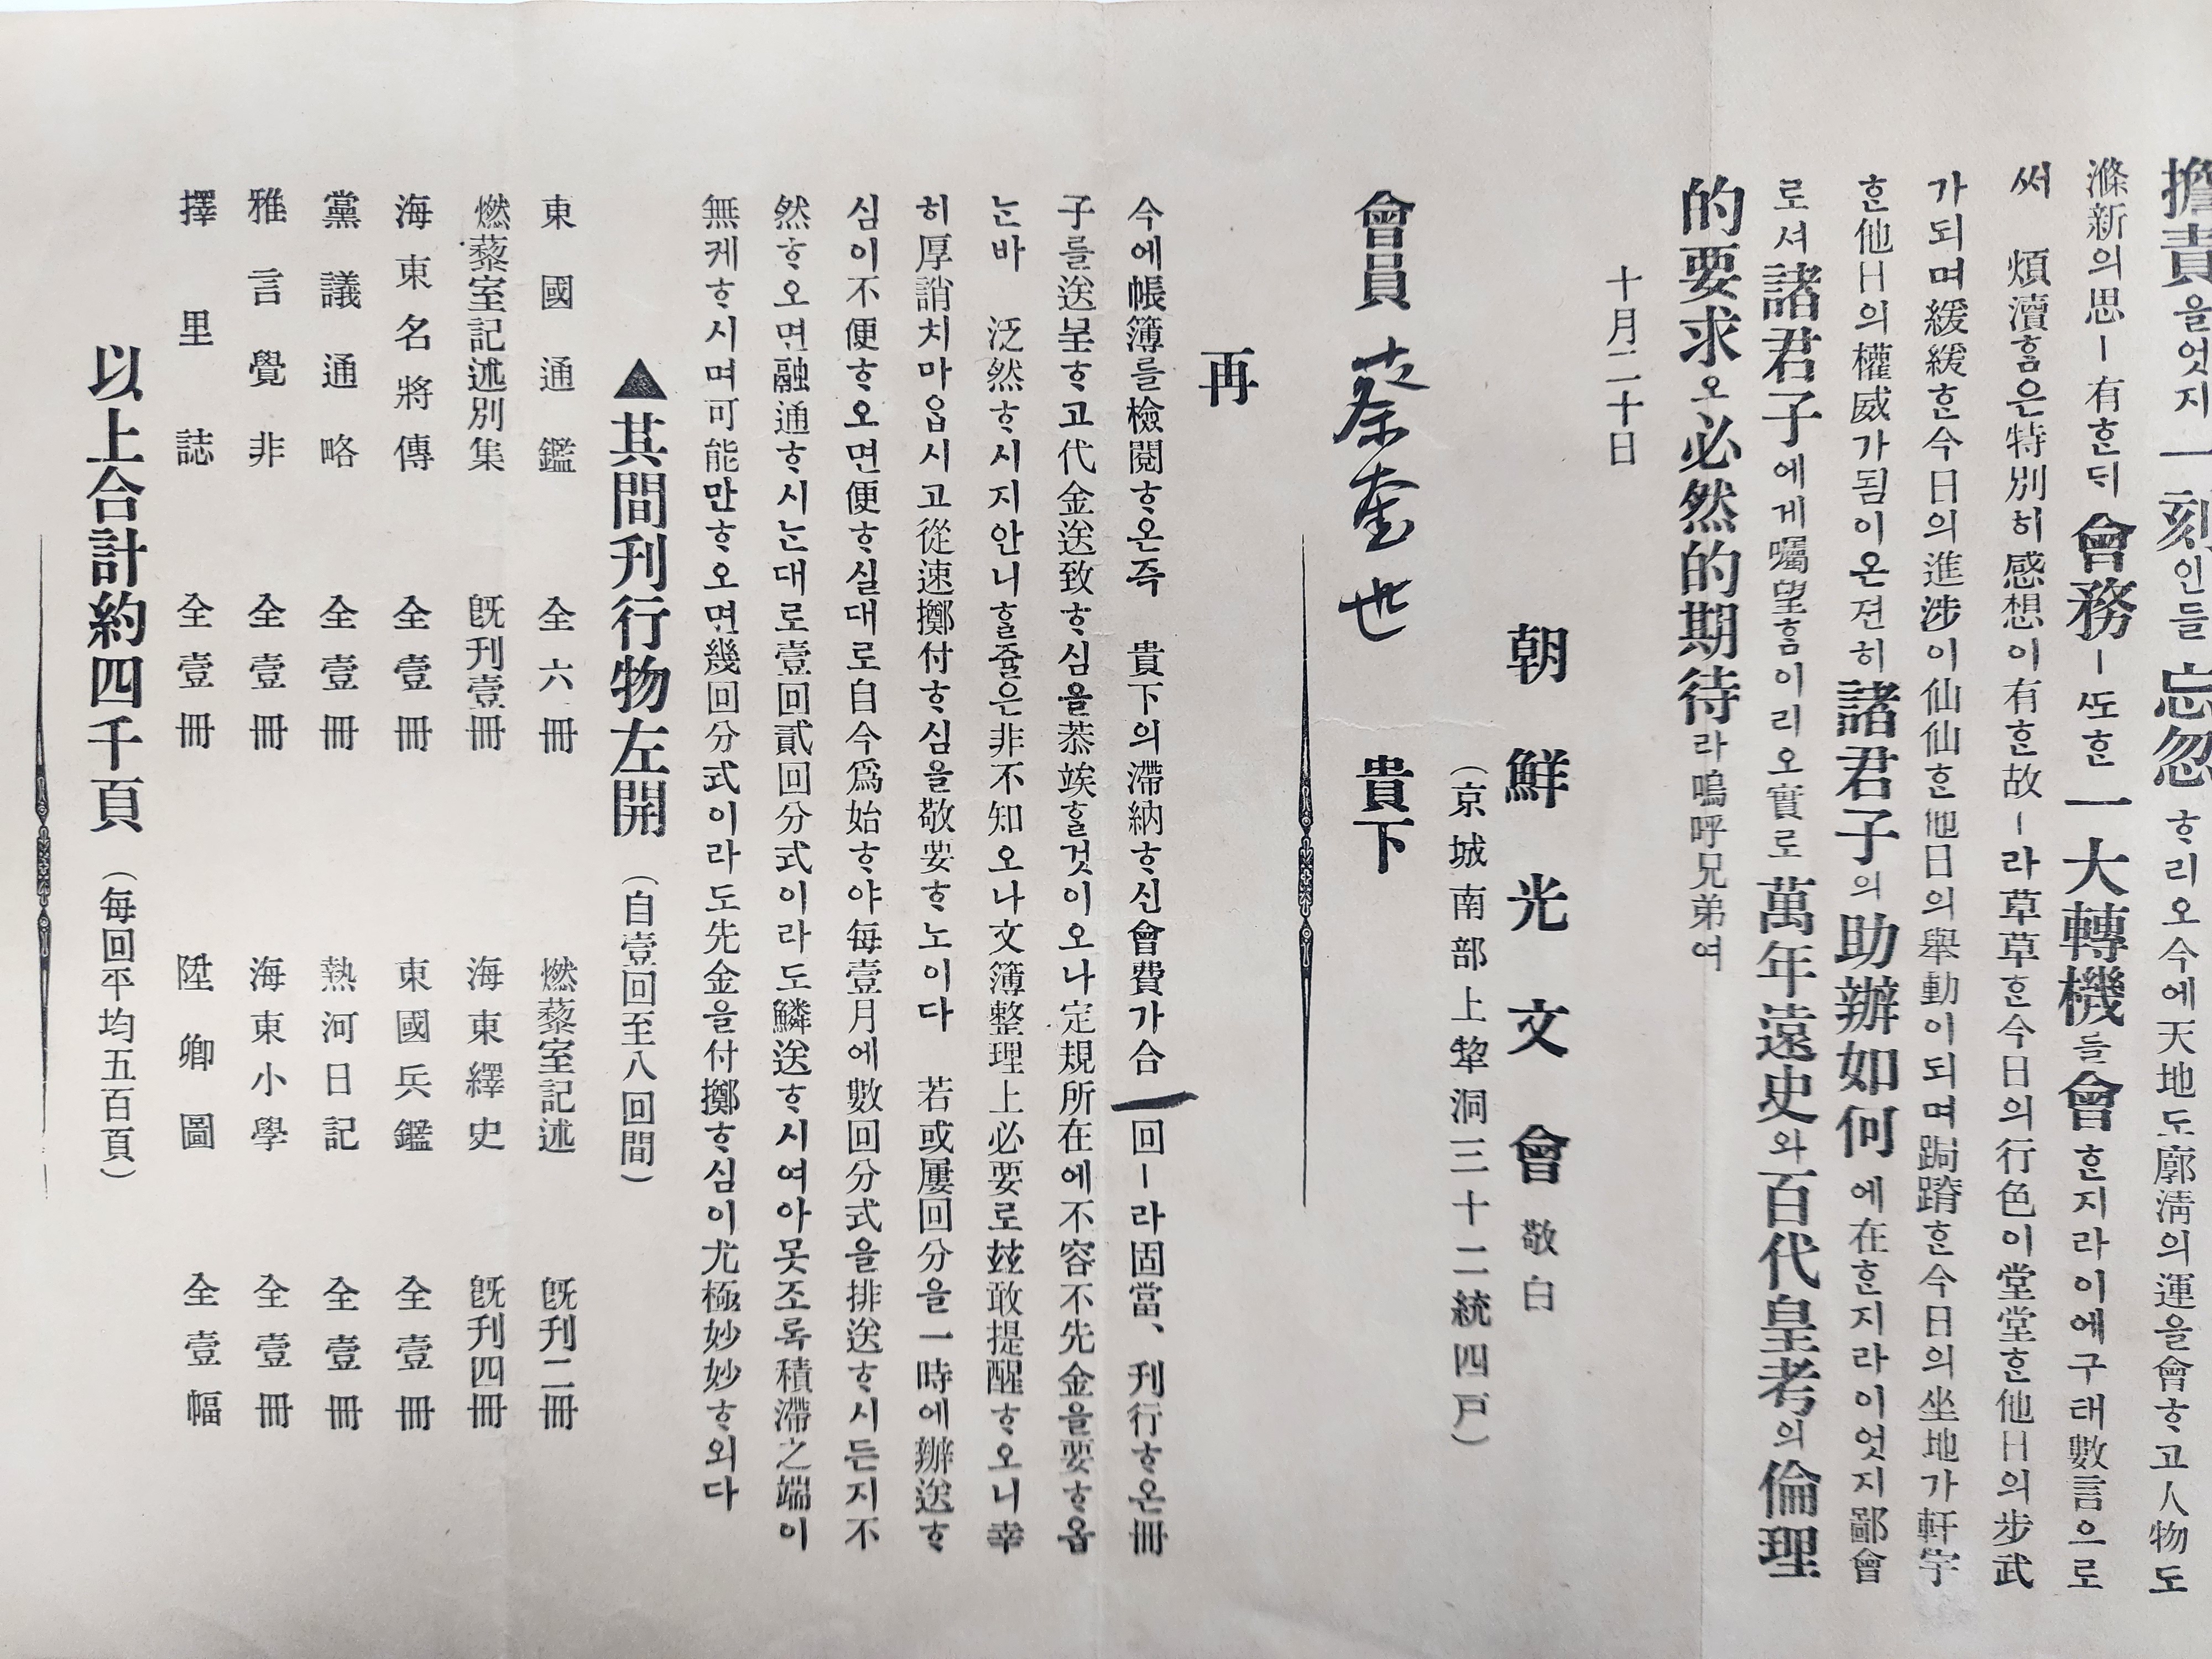 擔責을엇지一刻인들忘忽ᄒᆞ리오今에天地도廓淸의運을會ᄒᆞ고人物도
滌新의思ㅣ有ᄒᆞᆫ되會務ㅣᄯᅩᄒᆞᆫ一大轉機를會ᄒᆞᆫ지라이에구태數言으로
써 煩瀆ᄒᆞᆷ은特別히感想이有ᄒᆞᆫ故ㅣ라草草ᄒᆞᆫ今日의行色이堂堂ᄒᆞᆫ他日의步武
가되며緩緩ᄒᆞᆫ今日의進涉이仙仙ᄒᆞᆫ他日의擧動이되며跼蹐ᄒᆞᆫ今日의坐地가軒宇
ᄒᆞᆫ他日의權威가됨이온젼히諸君子의助辦如何에在ᄒᆞᆫ지라이엇지鄙會
로셔諸君子에게囑望ᄒᆞᆷ이리오實로萬年遠史와百代皇考의倫理
的要求오必然的期待라嗚呼兄弟여
十月二十日
朝鮮光文會 敬白
(京城南部上犂洞三十二統四戶)
會員 蔡奎世 貴下
再
今에帳簿를檢閱ᄒᆞ온즉 貴下의滯納ᄒᆞ신會費가合一回ㅣ라固當、刊行ᄒᆞ온冊
子를送呈ᄒᆞ고代金送致ᄒᆞ심을恭竢ᄒᆞᆯ것이오나定規所在에不容不先金을要ᄒᆞ옴
ᄂᆞᆫ바 泛然ᄒᆞ시지안니ᄒᆞᆯ쥴은非不知오나文簿整理上必要로玆敢提醒ᄒᆞ오니幸
히厚誚치마옵시고從速擲付ᄒᆞ심을敬要ᄒᆞ노이다 若或屢回分을一時에辦送ᄒᆞ
심이不便ᄒᆞ오면便ᄒᆞ실대로自今爲始ᄒᆞ야每壹月에數回分式을排送ᄒᆞ시든지不
然ᄒᆞ오면融通ᄒᆞ시ᄂᆞᆫ대로壹回貳回分式이라도鱗送ᄒᆞ시여아못조록積滯之端이
無케ᄒᆞ시며可能만ᄒᆞ오면幾回分式이라도先金을付擲ᄒᆞ심이尤極妙妙ᄒᆞ외다
▲其間刊行物左開(自壹回至八回間)
東國通鑑 全六冊 燃藜室記述 旣刊二冊
燃藜室記述別集 旣刊壹冊 海東繹史 旣刊四冊
海東名將傳 全壹冊 東國兵鑑 全壹冊
黨議通略 全壹冊 熱河日記 全壹冊
雅言覺非 全壹冊 海東小學 全壹冊
擇里誌 全壹冊 陞卿圖 全壹幅
以上合計約四千頁(每回平均五百頁)